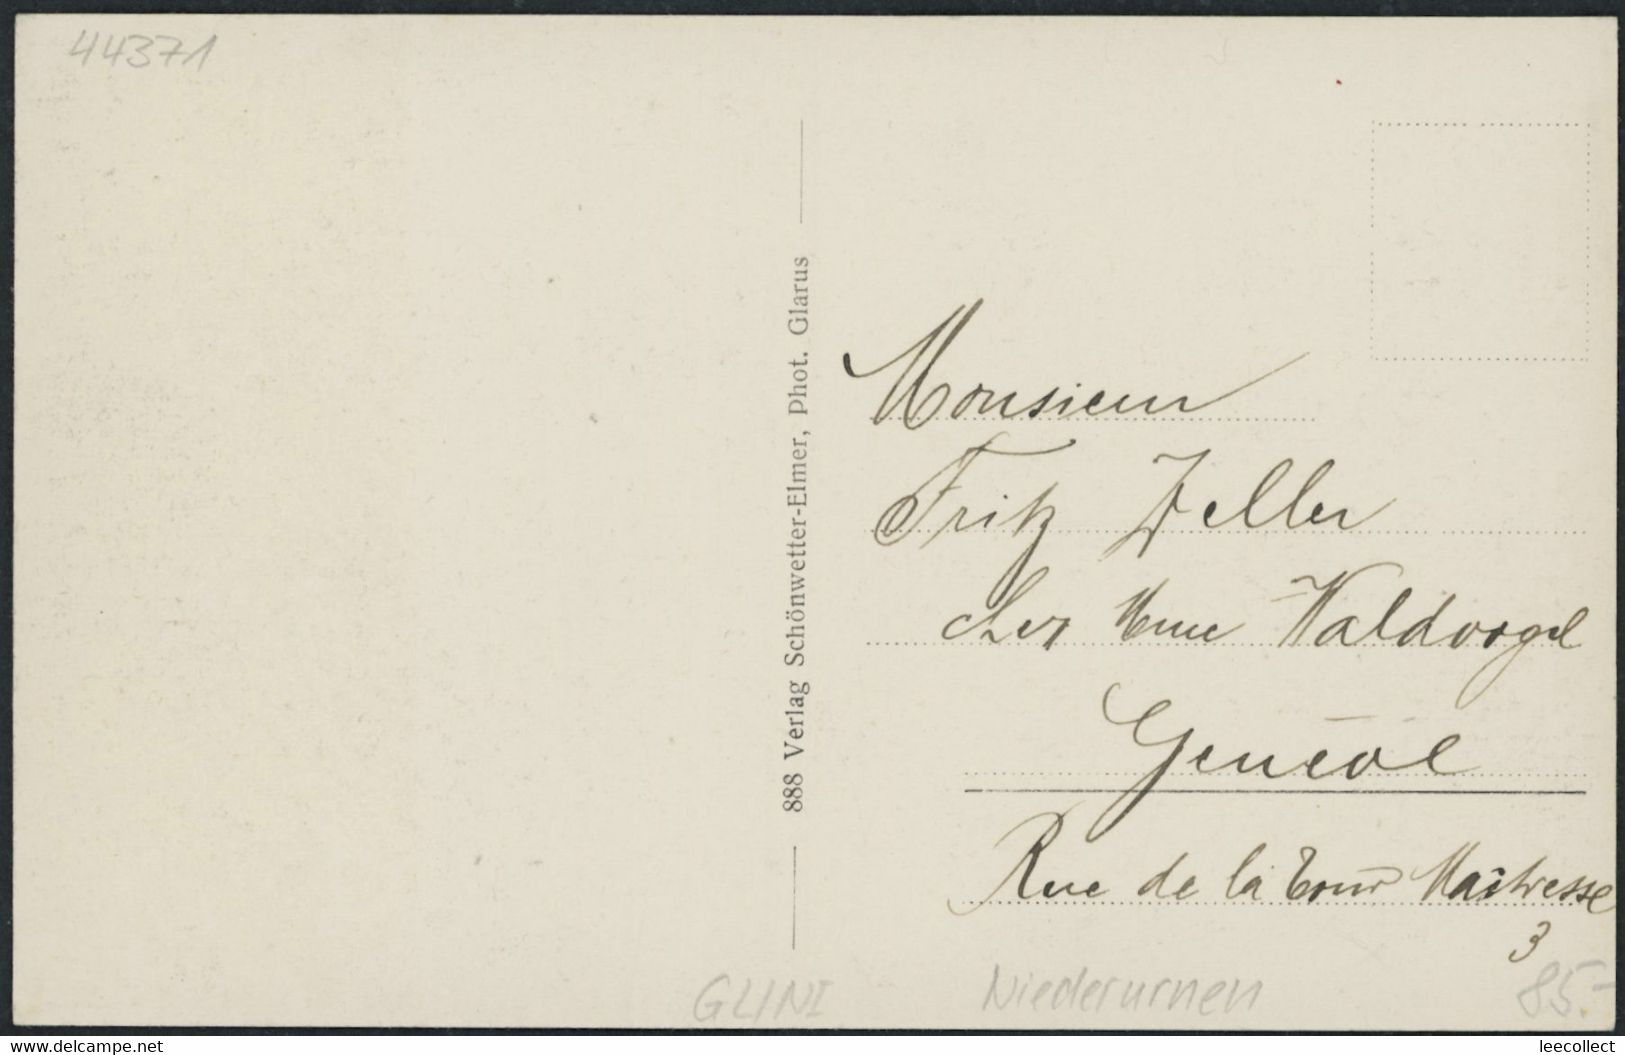 44371
888 Verlag Schönwetter-Elmer, Phot. Glarus
Monsieur
Fritz Zeller
chez Mme Waldvogel
Genève
Rue de la Tour Maîtresse
3
GLINI
Niederurnen
85.-
the-collectors.com
leecollect